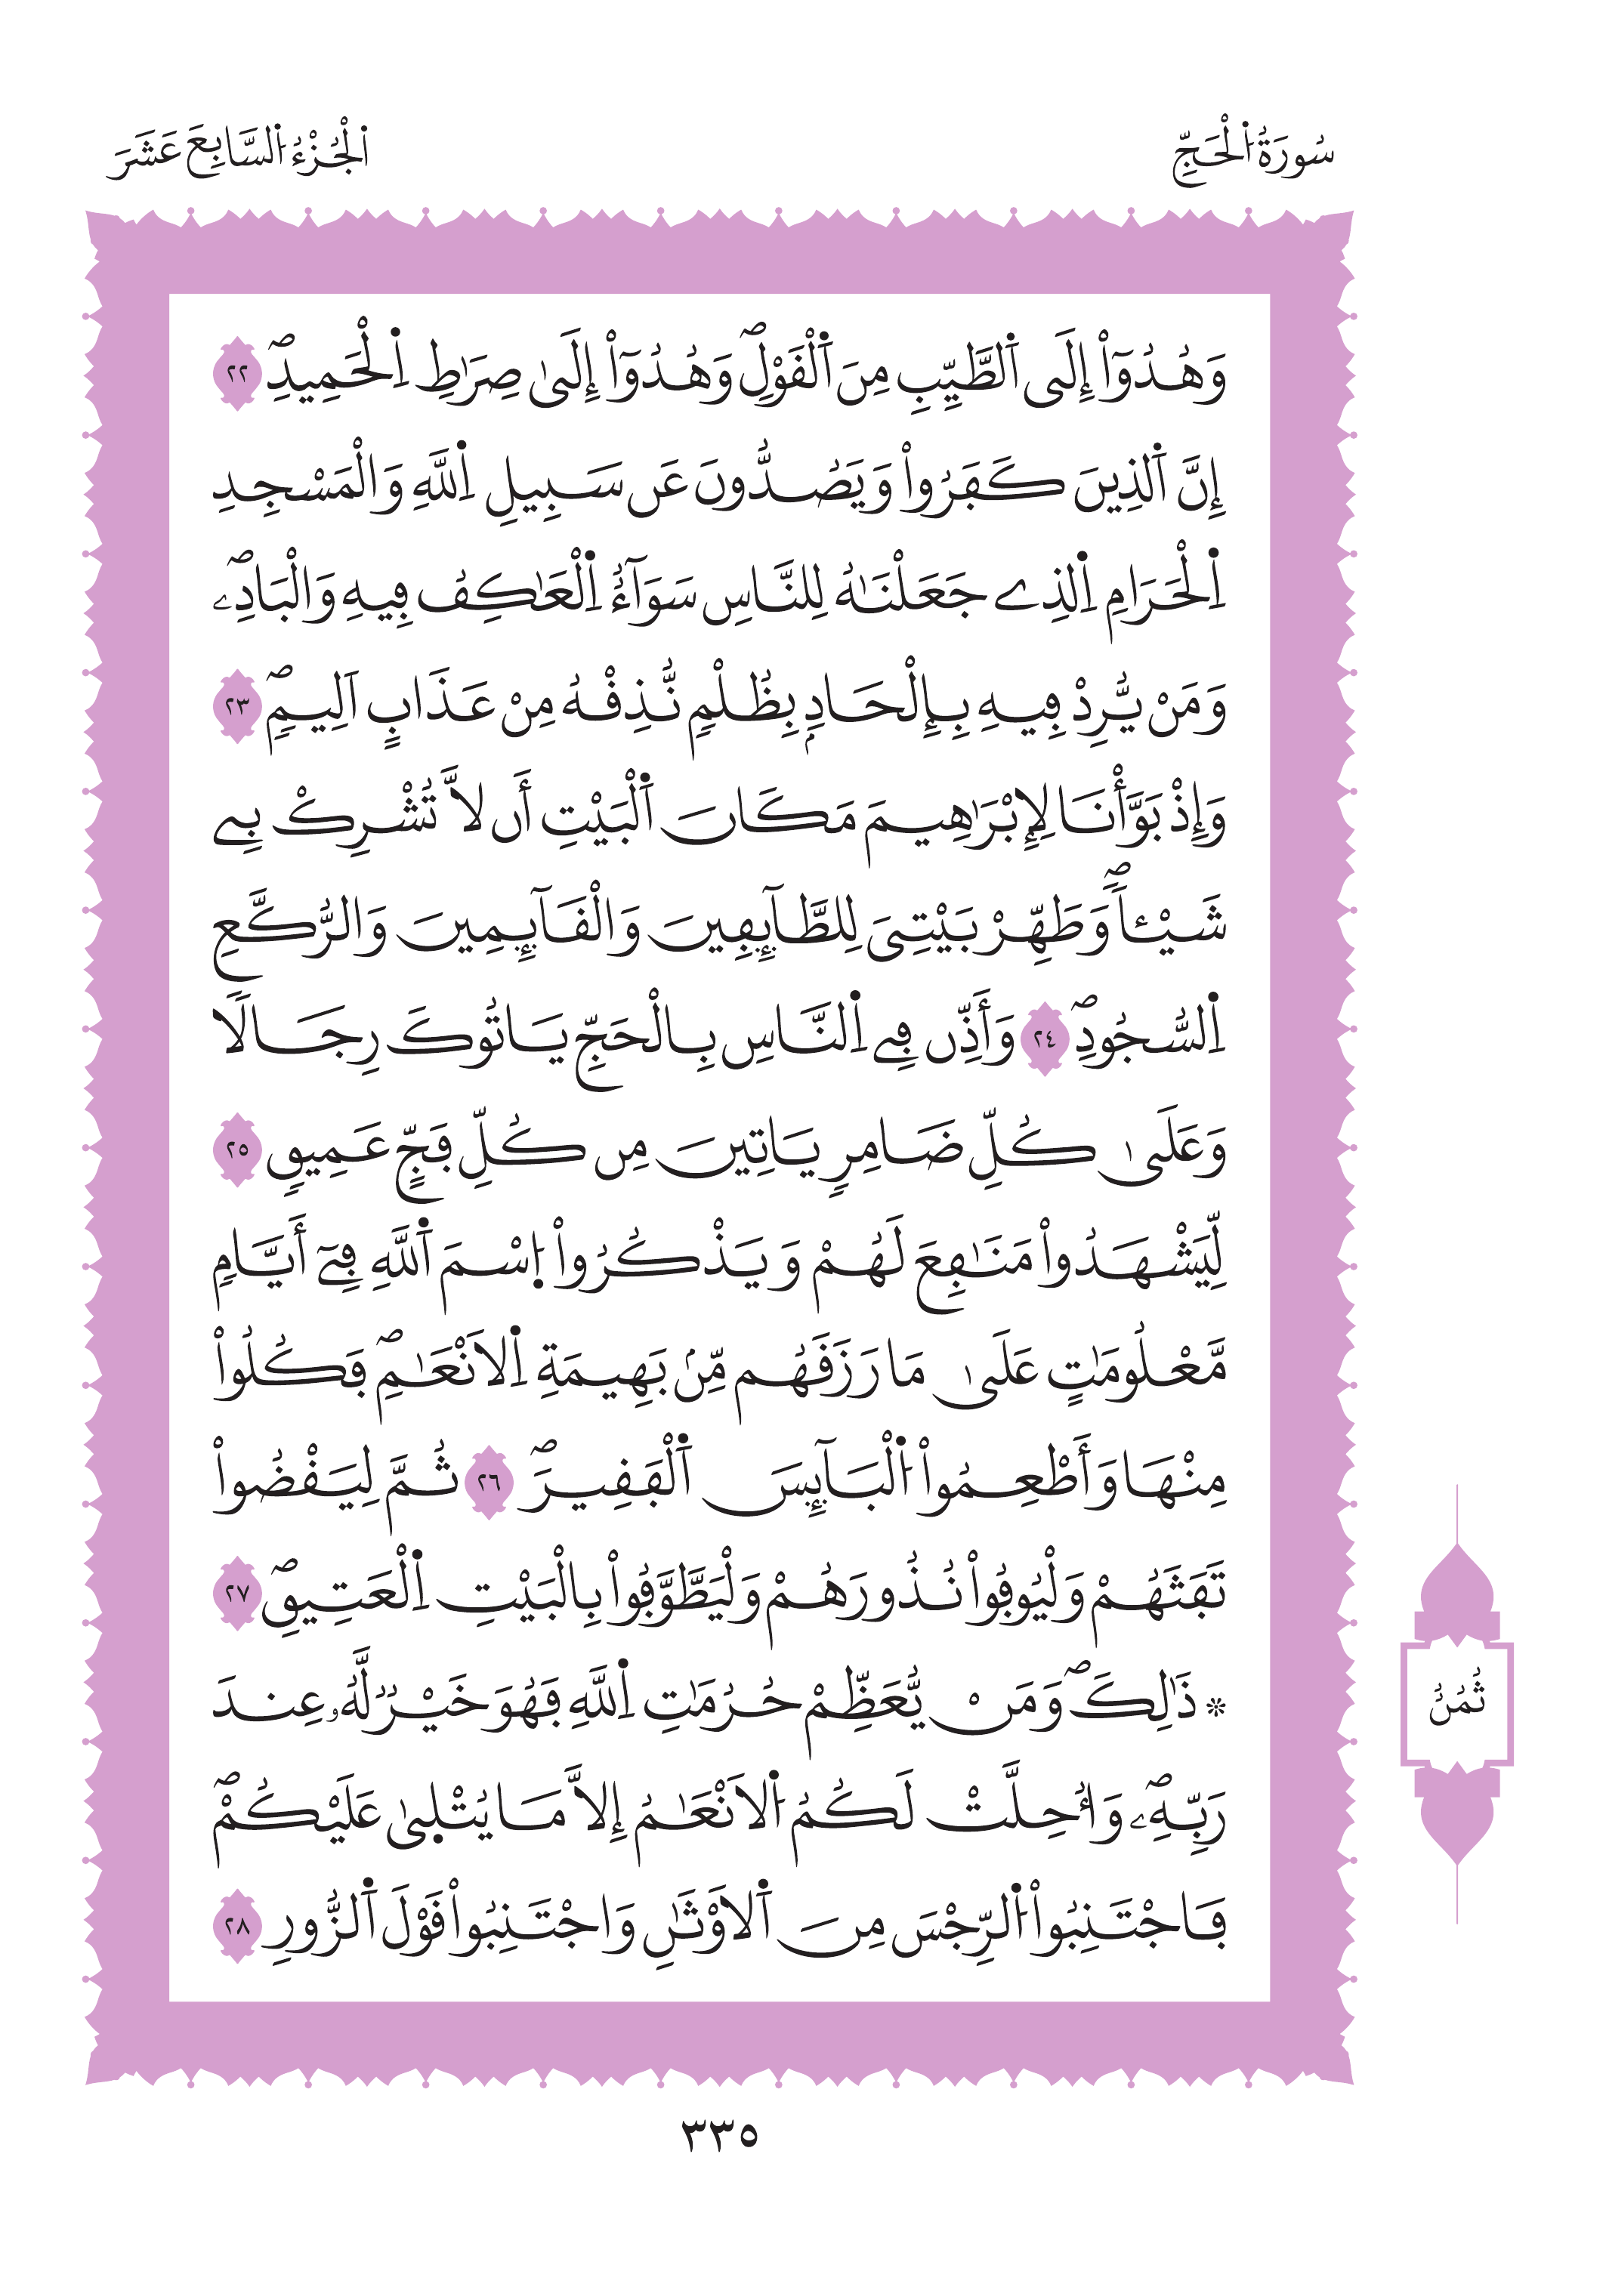 سُورَةُ اُ۬لْحَجِّ
اَ۬لْجُزْءُ اُ۬لسَّابِعَ عَشَرَ
وَهُدُوٓاْ إِلَى اَ۬لطَّيِّبِ مِنَ اَ۬لْقَوْلِۖ وَهُدُوٓاْ إِلَىٰ صِرَٰطِ اِ۬لْحَمِيدِۖ ٢٢
إِنَّ اَ۬لذِينَ كَفَرُواْ وَيَصُدُّونَ عَن سَبِيلِ اِ۬للَّهِ وَالْمَسْجِدِ
اِ۬لْحَرَامِ اِ۬لذِے جَعَلْنَٰهُ لِلنَّاسِ سَوَآءٌ اِ۬لْعَٰكِفُ فِيهِ وَالْبَادِۦۖ
وَمَنْ يُّرِدْ فِيهِ بِإِلْحَادِۢ بِظُلْمٖ نُّذِقْهُ مِنْ عَذَابٍ اَلِيمٖۖ ٢٣
وَإِذْ بَوَّأْنَا لِإِبْرَٰهِيمَ مَكَانَ اَ۬لْبَيْتِ أَن لَّا تُشْرِكْ بِے
شَيْـٔاٗۖ وَطَهِّرْ بَيْتِىَ لِلطَّآئِفِينَ وَالْقَآئِمِينَ وَالرُّكَّعِ
اِ۬لسُّجُودِۖ ٢٤ وَأَذِّن فِے اِ۬لنَّاسِ بِالْحَجِّ يَاتُوكَ رِجَالٗا
وَعَلَىٰ كُلِّ ضَامِرٖ يَاتِينَ مِن كُلِّ فَجٍّ عَمِيقٖ ٢٥
لِّيَشْهَدُواْ مَنَٰفِعَ لَهُمْ وَيَذْكُرُواْ اُ۪سْمَ اَ۬للَّهِ فِےٓ أَيَّامٖ
مَّعْلُومَٰتٍ عَلَىٰ مَا رَزَقَهُم مِّنۢ بَهِيمَةِ اِ۬لَانْعَٰمِۖ فَكُلُواْ
مِنْهَا وَأَطْعِمُواْ اُ۬لْبَآئِسَ اَ۬لْفَقِيرَۖ ٢٦ ثُمَّ لِيَقْضُواْ
تَفَثَهُمْ وَلْيُوفُواْ نُذُورَهُمْ وَلْيَطَّوَّفُواْ بِالْبَيْتِ اِ۬لْعَتِيقِۖ ٢٧
۞ ذَٰلِكَۖ وَمَنْ يُّعَظِّمْ حُرُمَٰتِ اِ۬للَّهِ فَهُوَ خَيْرٞ لَّهُۥ عِندَ
رَبِّهِۦۖ وَأُحِلَّتْ لَكُمُ اُ۬لَانْعَٰمُ إِلَّا مَا يُتْل۪ىٰ عَلَيْكُمْۖ
فَاجْتَنِبُواْ اُ۬لرِّجْسَ مِنَ اَ۬لَاوْثَٰنِ وَاجْتَنِبُواْ قَوْلَ اَ۬لزُّورِ ٢٨
ثُمُنٌ
٣٣٥